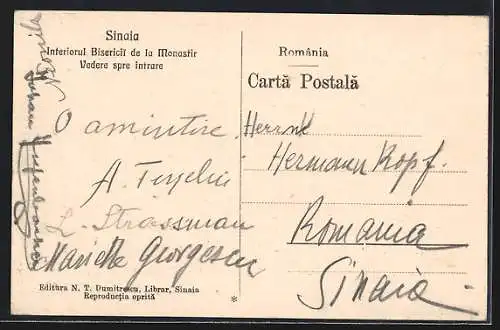 Sinaia
Interiorul Bisericii de la Monastir
Vedere spre intrare
O amintire
L. Strassman
Marietta Georgescu
Editura N. T. Dumitrescu, Librar, Sinaia
Reproducția oprită
România
Cartă Postală
Hermann Kopf.
Romania
Sinaia
*